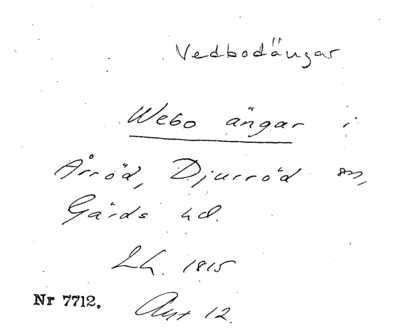 Vedbodängar
Webo ängar i
Årröd, Djurröd sn,
Gärds hd.
LH. 1815
Nr 7712. Akt 12.